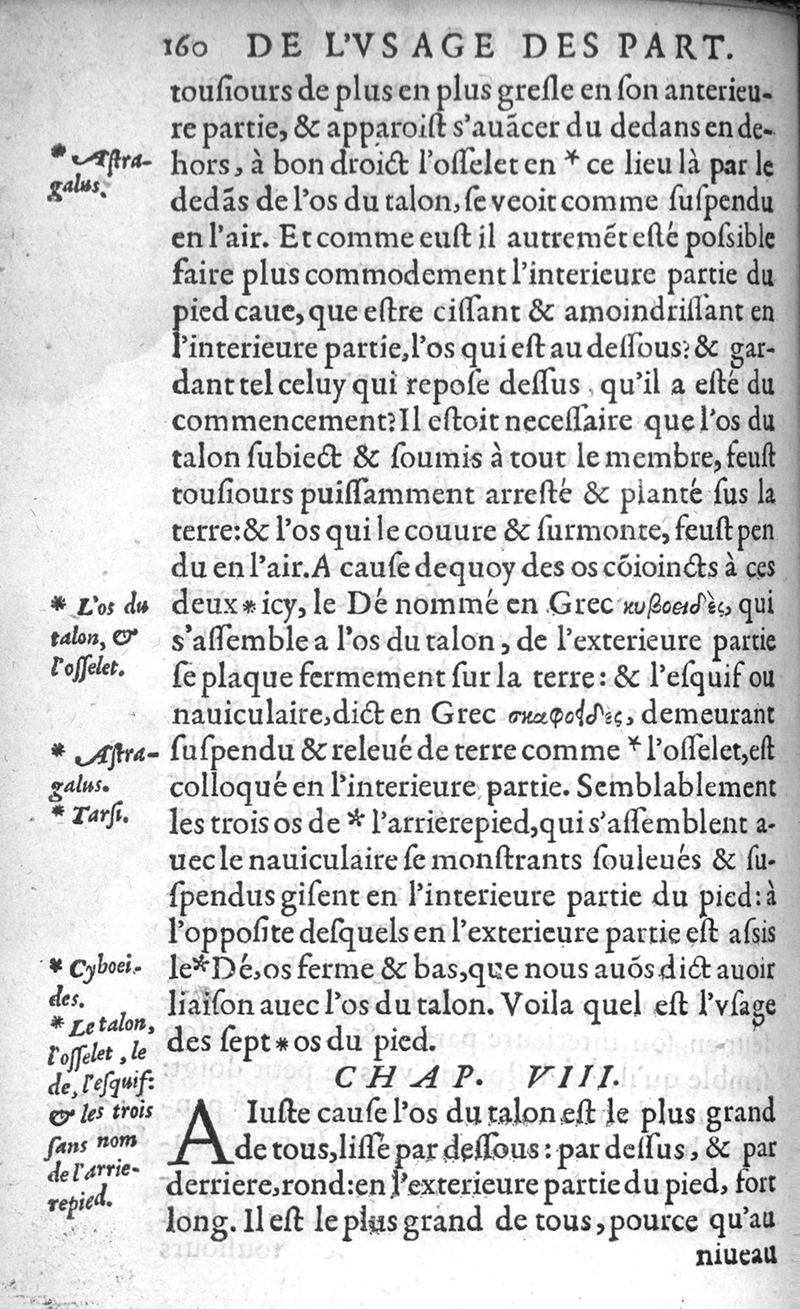 160 DE L'VSAGE DES PART.
touſiours de plus en plus greſle en ſon anterieu-
re partie, & apparoiſt s'auãcer du dedans en de-
* Aſtra-
galus.
hors, à bon droict l'oſſelet en * ce lieu là par le
dedãs de l'os du talon, ſe veoit comme ſuſpendu
en l'air. Et comme euſt il autremẽt eſté poſsible
faire plus commodement l'interieure partie du
pied caue, que eſtre ciſſant & amoindriſſant en
l'interieure partie, l'os qui eſt au deſſous: & gar-
dant tel celuy qui repoſe deſſus, qu'il a eſté du
commencement? Il eſtoit neceſſaire que l'os du
talon ſubiect & ſoumis à tout le membre, feuſt
touſiours puiſſamment arreſté & planté ſus la
terre: & l'os qui le couure & ſurmonte, feuſt pen
du en l'air. A cauſe dequoy des os cõioincts à ces
* L'os du
talon, &
l'oſſelet.
deux * icy, le Dé nommé en Grec κυβοειδὲς, qui
s'aſſemble a l'os du talon, de l'exterieure partie
ſe plaque fermement ſur la terre: & l'eſquif ou
nauiculaire, dict en Grec σκαφοίδὲς, demeurant
* Aſtra-
galus.
* Tarſi.
ſuſpendu & releué de terre comme * l'oſſelet, eſt
colloqué en l'interieure partie. Semblablement
les trois os de * l'arrierepied, qui s'aſſemblent a-
uec le nauiculaire ſe monſtrants ſouleués & ſu-
ſpendus giſent en l'interieure partie du pied: à
l'oppoſite deſquels en l'exterieure partie eſt aſsis
* Cyboei-
des.
le * Dé, os ferme & bas, que nous auõs dict auoir
liaiſon auec l'os du talon. Voila quel eſt l'vſage
* Le talon,
l'oſſelet, le
de, l'eſquif:
& les trois
ſans nom
de l'arrie-
repied.
des ſept * os du pied.
CHAP. VIII.
A Iuſte cauſe l'os du talon eſt le plus grand
de tous, liſſe par deſſous: par deſſus, & par
derriere, rond: en l'exterieure partie du pied, fort
long. Il eſt le plus grand de tous, pource qu'au
niueau